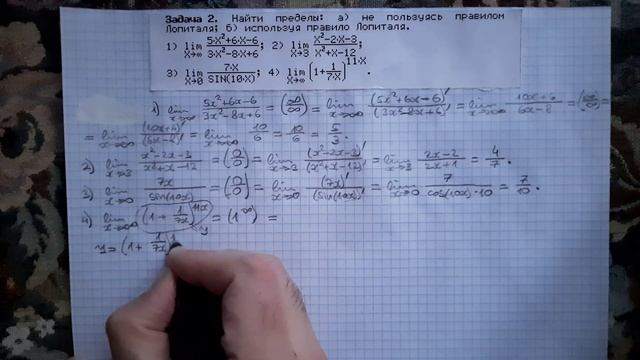 Задача 2. Найти пределы: а) не пользуясь правилом
Лопиталя; б) используя правило Лопиталя.
1) lim x→∞ (5·X²+6·X-6)/(3·X²-8·X+6); 2) lim x→3 (X²-2·X-3)/(X²+X-12);
3) lim x→0 7·X/SIN(10·X); 4) lim x→∞ (1+1/(7X))^(11·X).
1) lim x→∞ (5x²+6x-6)/(3x²-8x+6) = (∞/∞) = lim x→∞ (5x²+6x-6)'/(3x²-8x+6)' = lim x→∞ (10x+6)/(6x-8) = (∞/∞) =
= lim x→∞ (10x+6)'/(6x-8)' = lim x→∞ 10/6 = 10/6 = 5/3.
2) lim x→3 (x²-2x-3)/(x²+x-12) = (0/0) = lim x→3 (x²-2x-3)'/(x²+x-12)' = lim x→3 (2x-2)/(2x+1) = 4/7.
3) lim x→0 7x/sin(10x) = (0/0) = lim x→0 (7x)'/(sin(10x))' = lim x→0 7/(cos(10x)·10) = 7/10.
4) lim x→∞ (1+1/(7x))^(11x) = (1^∞) =
y
y = (1+1/(7x))